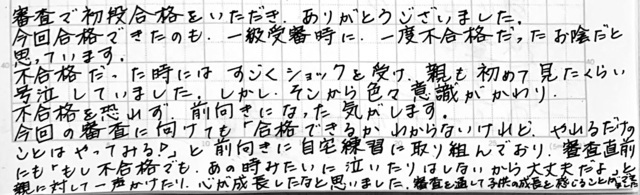 審査で初段合格をいただき、ありがとうございました。
今回合格できたのも、一級受審時に、一度不合格だったお陰だと
思っています。
不合格だった時にはすごくショックを受け、親も初めて見たくらい
号泣していました。しかし、そこから色々意識がかわり、
不合格を恐れず、前向きになった気がします。
今回の審査に向けても「合格できるかわからないけれど、やれるだけの
ことはやってみる!」と前向きに自宅練習に取り組んでおり、審査直前
にも「もし不合格でも、あの時みたいに泣いたりはしないから大丈夫だよ」と
親に対して一声かけたり、心が成長したなと思いました。審査を通して子供の成長を感じることができ